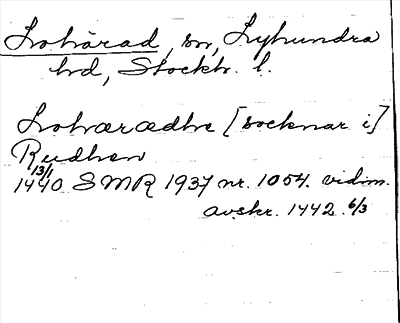 Lohärad, sn, Lyhundra
hd, Stockh. l.
Lohæradhe [socknar i]
Rudhen
13/1
1440 SMR 1937 nr. 1054. vidim.
avskr. 1442 6/3